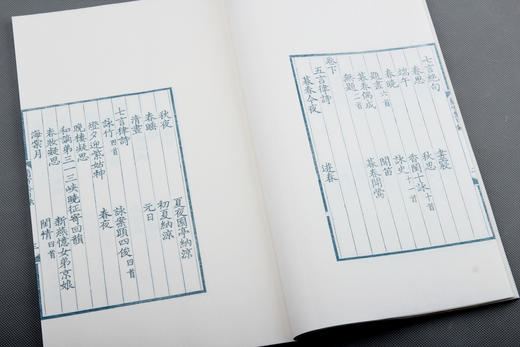 七言絶句
春思
端午 秋思
春曉
題畫 詠史二首
暮春偶成 聞笛
無題二首 暮春聞鶯
卷下
五言律詩
暮春今夜 遊春
秋夜 夏夜園亭納涼
春睡 初夏納涼
清晝 元日
七言律詩
詠竹四首 詠案頭四俊四首
燈夕迎紫姑神 春夜
晚樓凝思
三峽晚征寄回韻
春妝凝思 新燕憶女弟京娘
海棠月 閨情四首